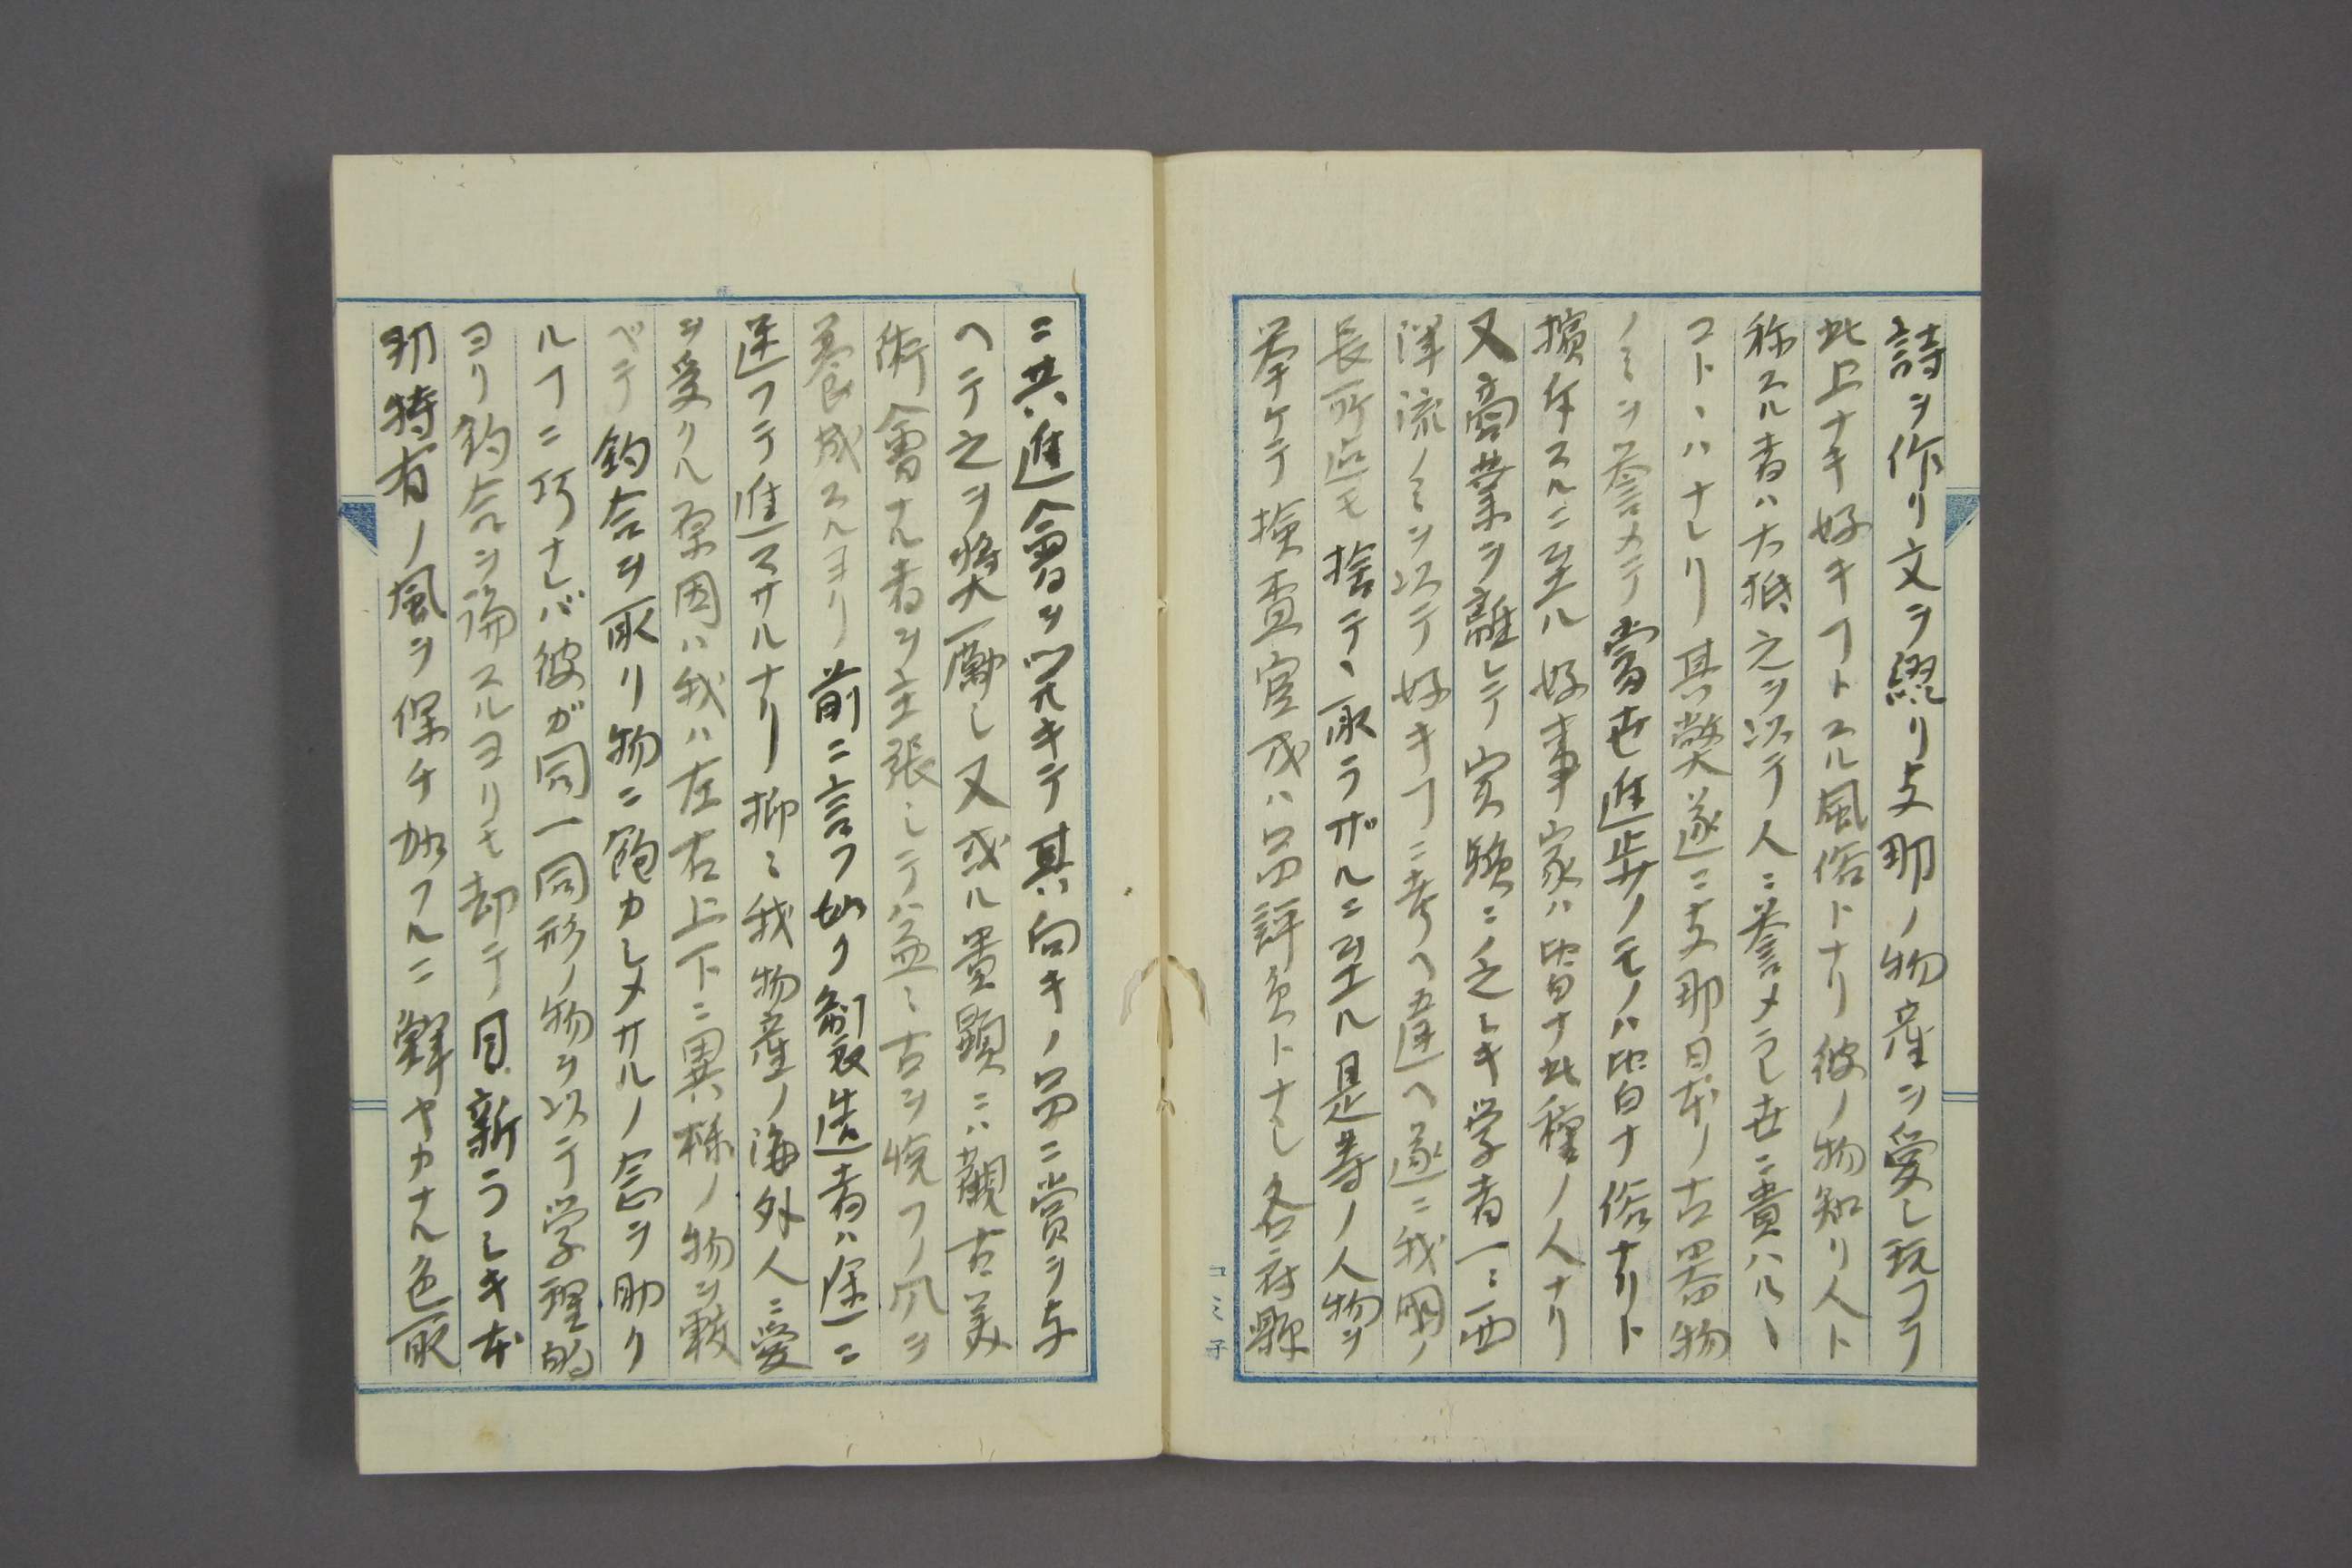 詩ヲ作リ文ヲ綴リ支那ノ物産ヲ愛シ玩フヲ
此上ナキ好キヿトスル風俗トナリ彼ノ物知リ人ト
称スル者ハ大抵之ヲ以テ人ニ誉メラレ世ニ貴ハルヽ
コトヽハナレリ其弊遂ニ支那日本ノ古器物
ノミヲ誉メテ當世進歩ノモノハ皆ナ俗ナリト
擯斥スルニ至ル好事家ハ皆ナ此種ノ人ナリ
又商業ヲ離レテ実験ニ乏シキ学者一ニ西
洋流ノミヲ以テ好キヿニ考ヘ違ヘ遂ニ我國ノ
長所迄モ捨テヽ取ラザルニ至ル是等ノ人物ヲ
挙ケテ検査官或ハ品評員トナシ各府縣
ニ共進會ヲ開キテ其向キノ品ニ賞ヲ与
ヘテ之ヲ奨厲シ又或ル貴顕ニハ観古美
術會ナル者ヲ主張シテ益ミ古ヲ慌フノ風ヲ
養成スルヨリ前ニ言フ如ク製造者ハ途ニ
迷フテ進マサルナリ抑ミ我物産ノ海外人ニ愛
ヲ受クル原因ハ我ハ左右上下ニ異様ノ物ヲ載
ベテ釣合ヲ取リ物ニ飽カシメサルノ念ヲ助ク
ルヿニ巧ナレバ彼ガ同一同形ノ物ヲ以テ学理的
ヨリ釣合ヲ論スルヨリモ却テ目新ラシキ本
邦特有ノ風ヲ保チ加フルニ鮮ヤカナル色取
コミ子